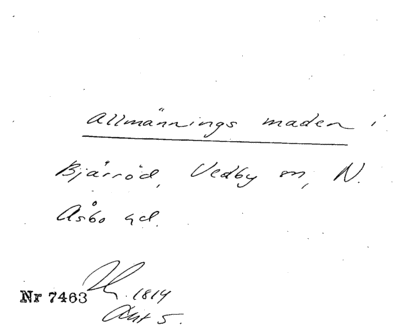 Allmännings maden i
Bjärröd, Vedby sn, N.
Åsbo hd.
Nr 7463 1814
Akt 5.